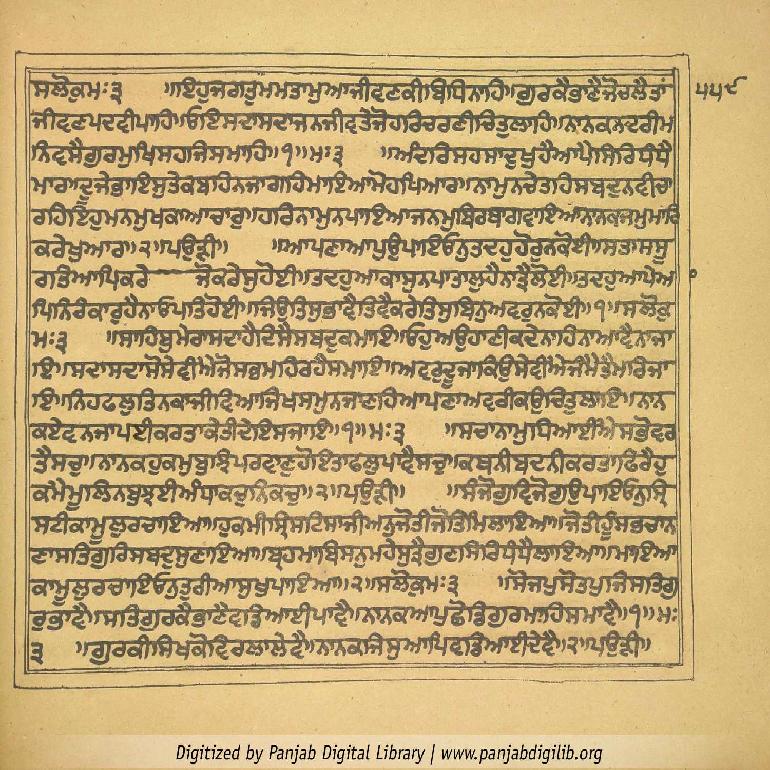 ਸਲੋਕੁਮਃ੩ ॥ਇਹੁਜਗਤੁਮਮਤਾਮੁਆਜੀਵਣਕੀਬਿਧਿਨਾਹਿ॥ਗੁਰਕੈਭਾਣੈਜੋਚਲੈਤਾਂ
੫੫੯
ਜੀਵਣਪਦਵੀਪਾਹਿ॥ਓਇਸਦਾਸਦਾਜਨਜੀਵਤੇਜੋਹਰਿਚਰਣੀਚਿਤੁਲਾਹਿ॥ਨਾਨਕਨਦਰੀਮ
ਨਿਵਸੈਗੁਰਮੁਖਿਸਹਜਿਸਮਾਹਿ॥੧॥ਮਃ੩ ॥ਅੰਦਰਿਸਹਸਾਦੁਖੁਹੈਆਪੈਸਿਰਿਧੰਧੈ
ਮਾਰ॥ਦੂਜੈਭਾਇਸੁਤੇਕਬਹਿਨਜਾਗਹਿਮਾਇਆਮੋਹਪਿਆਰ॥ਨਾਮੁਨਚੇਤਹਿਸਬਦੁਨਵੀਚਾ
ਰਹਿਇਹੁਮਨਮੁਖਕਾਆਚਾਰੁ॥ਹਰਿਨਾਮੁਨਪਾਇਆਜਨਮੁਬਿਰਥਾਗਵਾਇਆਨਾਨਕਜਮੁਮਾਰਿ
ਕਰੇਖੁਆਰ॥੨॥ਪਉੜੀ॥ ॥ਆਪਣਾਆਪੁਉਪਾਇਓਨੁਤਦਹੁਹੋਰੁਨਕੋਈ॥ਮਤਾਮਸੂ
ਰਤਿਆਪਿਕਰੇ ਜੋਕਰੇਸੁਹੋਈ॥ਤਦਹੁਆਕਾਸੁਨਪਾਤਾਲੁਹੈਨਾਤ੍ਰੈਲੋਈ॥ਤਦਹੁਆਪੇਆ
ਪਿਨਿਰੰਕਾਰੁਹੈਨਾਓਪਤਿਹੋਈ॥ਜਿਉਤਿਸੁਭਾਵੈਤਿਵੈਕਰੇਤਿਸੁਬਿਨੁਅਵਰੁਨਕੋਈ॥੧॥ਸਲੋਕੁ
ਮਃ੩ ॥ਸਾਹਿਬੁਮੇਰਾਸਦਾਹੈਦਿਸੈਸਬਦੁਕਮਾਇ॥ਓਹੁਅਉਹਾਣੀਕਦੇਨਾਹਿਨਾਆਵੈਨਾਜਾ
ਇ॥ਸਦਾਸਦਾਸੋਸੇਵੀਐਜੋਸਭਮਹਿਰਹੈਸਮਾਇ॥ਅਵਰੁਦੂਜਾਕਿਉਸੇਵੀਐਜੰਮੈਤੈਮਰਿਜਾ
ਇ॥ਨਿਹਫਲੁਤਿਨਕਾਜੀਵਿਆਜਿਖਸਮੁਨਜਾਣਹਿਆਪਣਾਅਵਰੀਕਉਚਿਤੁਲਾਇ॥ਨਾਨ
ਕਏਵਨਜਾਪਈਕਰਤਾਕੇਤੀਦੇਇਸਜਾਇ॥੧॥ਮਃ੩ ॥ਸਚਾਨਾਮੁਧਿਆਈਐਸਭੋਵਰ
ਤੈਸਚੁ॥ਨਾਨਕਹੁਕਮੁਬੁਝਿਪਰਵਾਣੁਹੋਇਤਾਫਲੁਪਾਵੈਸਚੁ॥ਕਥਨੀਬਦਨੀਕਰਤਾਫਿਰੈਹੁ
ਕਮੈਮੂਲਿਨਬੁਝਈਅੰਧਾਕਚੁਨਿਕਚੁ॥੨॥ਪਉੜੀ॥ ॥ਸੰਜੋਗੁਵਿਜੋਗੁਉਪਾਇਓਨੁਸ੍ਰਿ
ਸਟੀਕਾਮੂਲੁਰਚਾਇਆ॥ਹੁਕਮੀਸ੍ਰਿਸਟਿਸਾਜੀਅਨੁਜੋਤੀਜੋਤਿਮਿਲਾਇਆ॥ਜੋਤੀਹੂੰਸਭਚਾਨ
ਣਾਸਤਿਗੁਰਿਸਬਦੁਸੁਣਾਇਆ॥ਬ੍ਰਹਮਾਬਿਸਨੁਮਹੇਸੁਤ੍ਰੈਗੁਣਸਿਰਿਧੰਧੈਲਾਇਆ॥ਮਾਇਆ
ਕਾਮੂਲੁਰਚਾਇਓਨੁਤੁਰੀਆਸੁਖੁਪਾਇਆ॥੨॥ਸਲੋਕੁਮਃ੩ ॥ਸੋਜਪੁਸੋਤਪੁਜਿਸਤਿਗੁ
ਰਭਾਵੈ॥ਸਤਿਗੁਰਕੈਭਾਣੈਵਡਿਆਈਪਾਵੈ॥ਨਾਨਕਆਪੁਛੋਡਿਗੁਰਮਾਹਿਸਮਾਵੈ॥੧॥ਮਃ
੩ ॥ਗੁਰਕੀਸਿਖਕੋਵਿਰਲਾਲੇਵੈ॥ਨਾਨਕਜਿਸੁਆਪਿਵਡਿਆਈਦੇਵੈ॥੨॥ਪਉੜੀ॥
Digitized by Panjab Digital Library | www.panjabdigilib.org